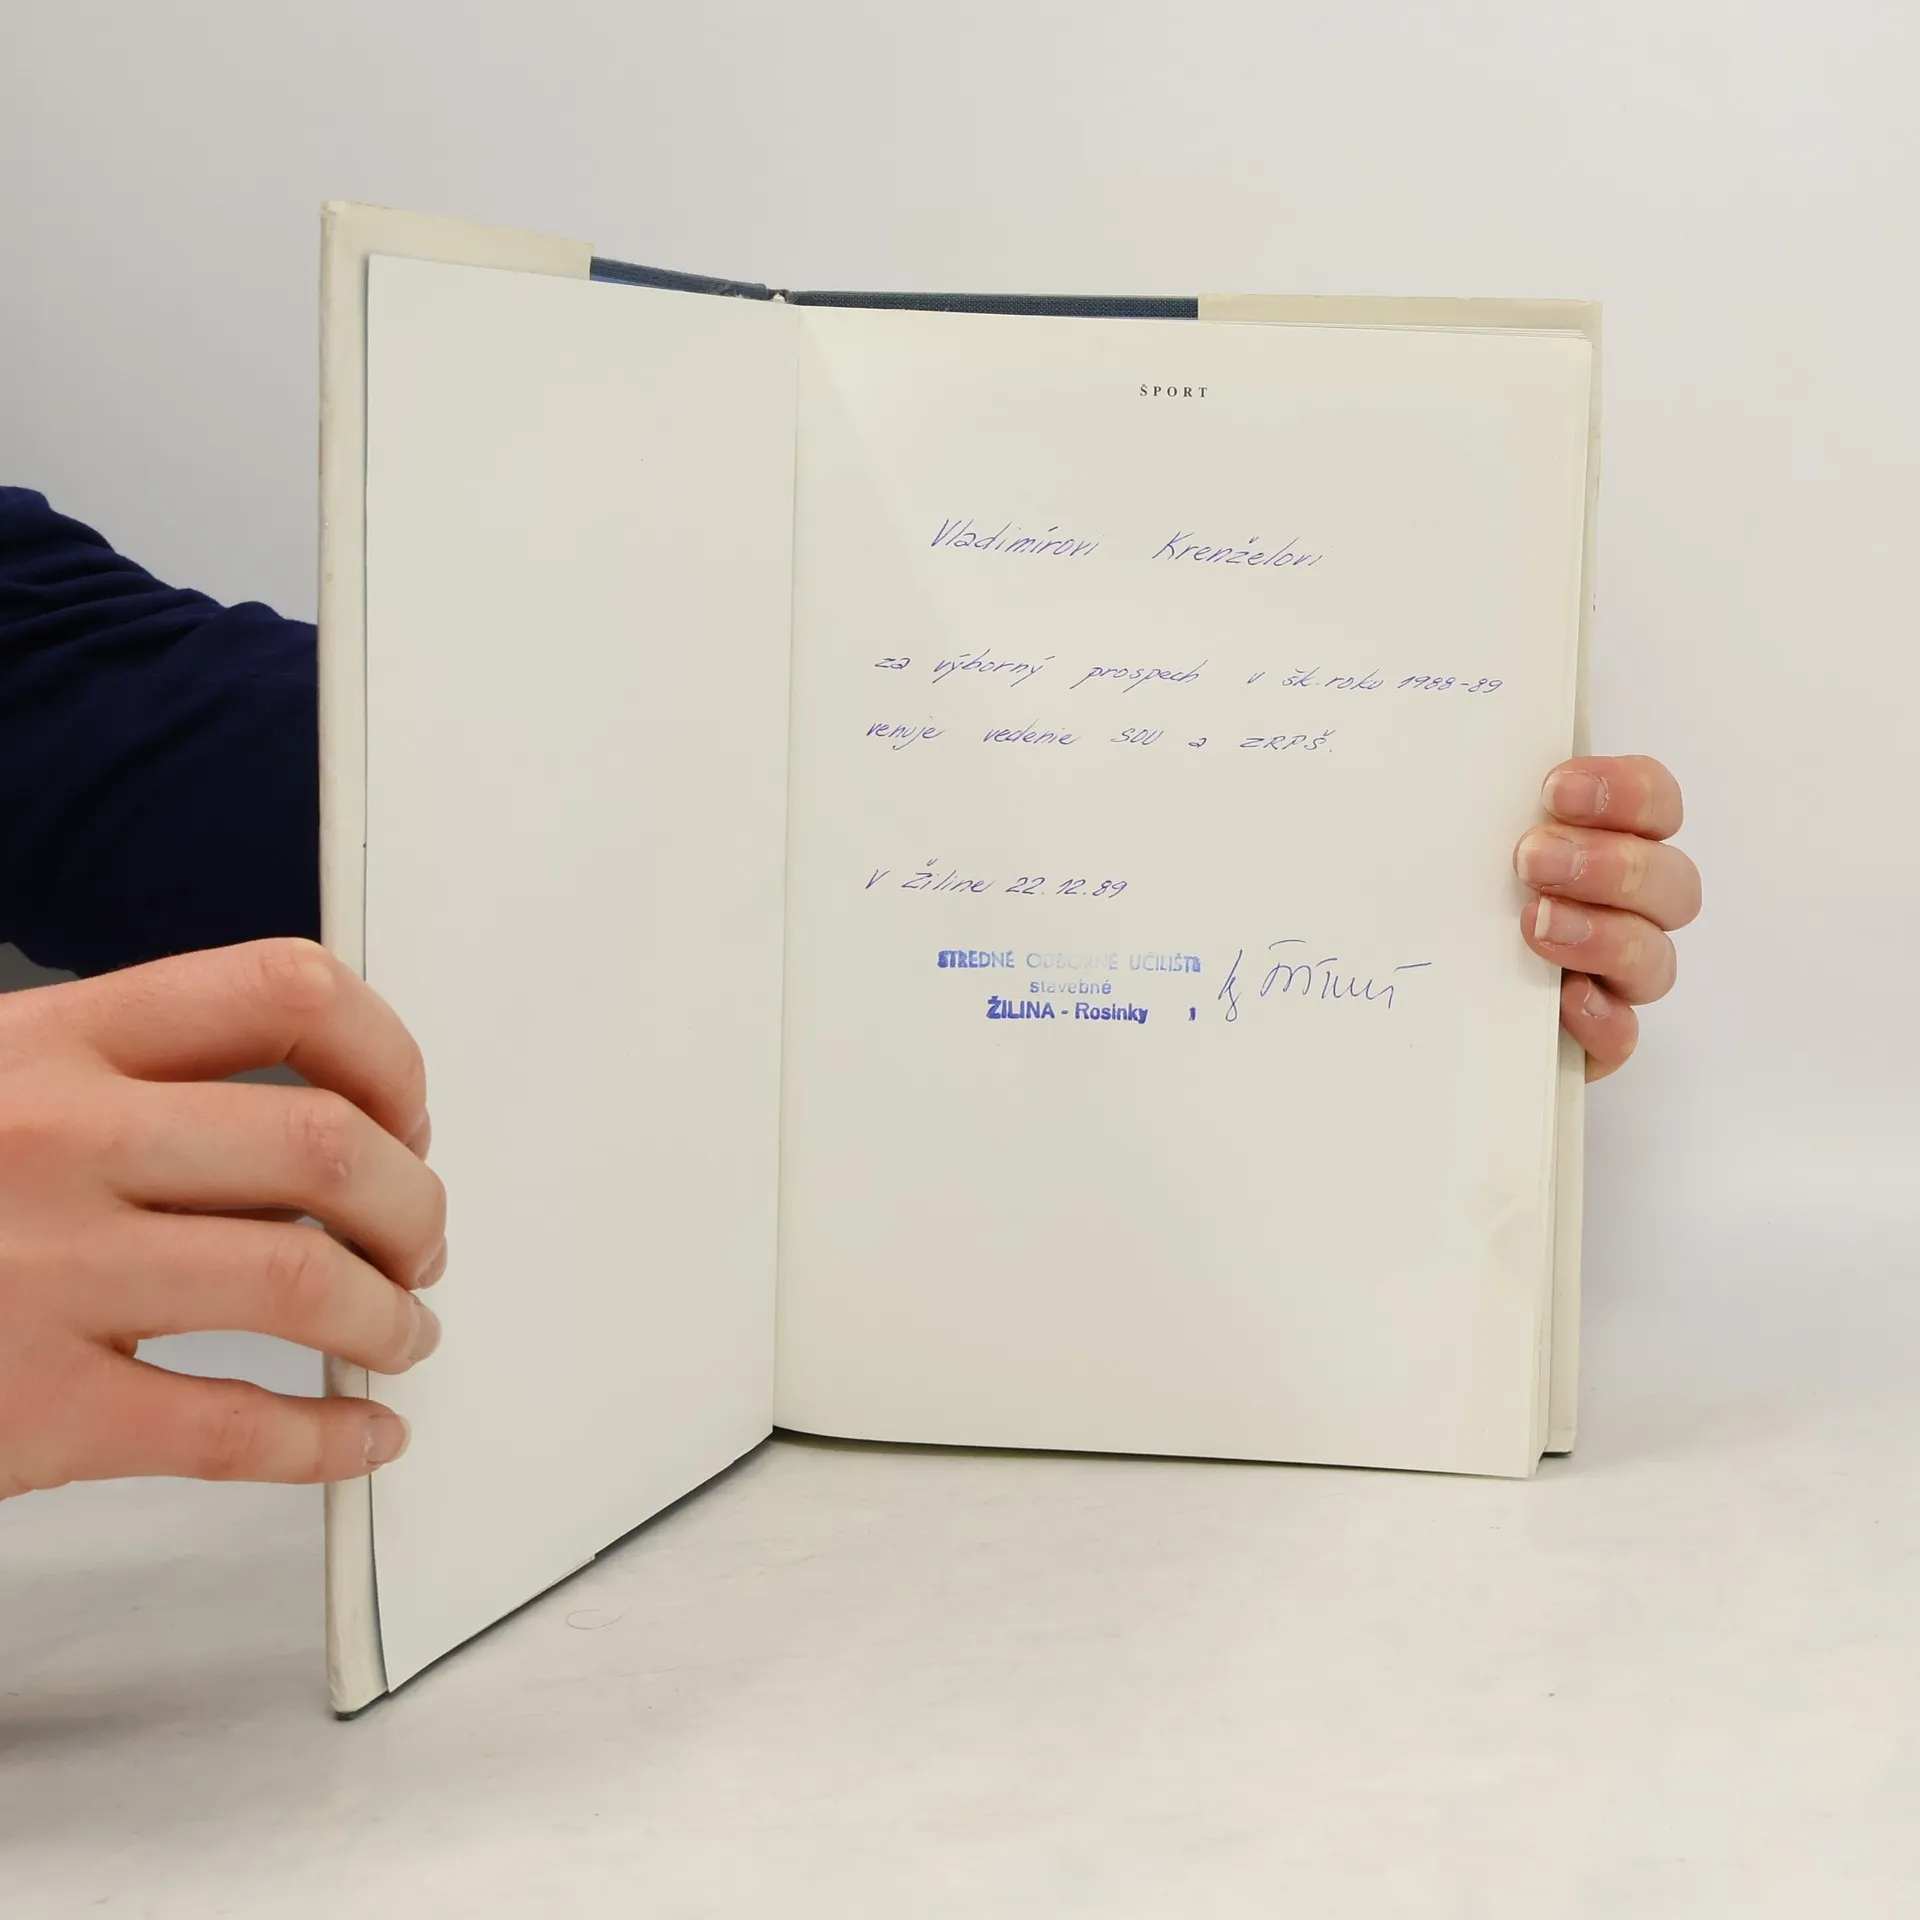 ŠPORT
Vladimírovi Krenželovi
za výborný prospech v šk. roku 1988-89
venuje vedenie SOU a ZRPŠ.
V Žiline 22.12.89
STREDNÉ ODBORNÉ UČILIŠTE
stavebné
ŽILINA - Rosinky 1